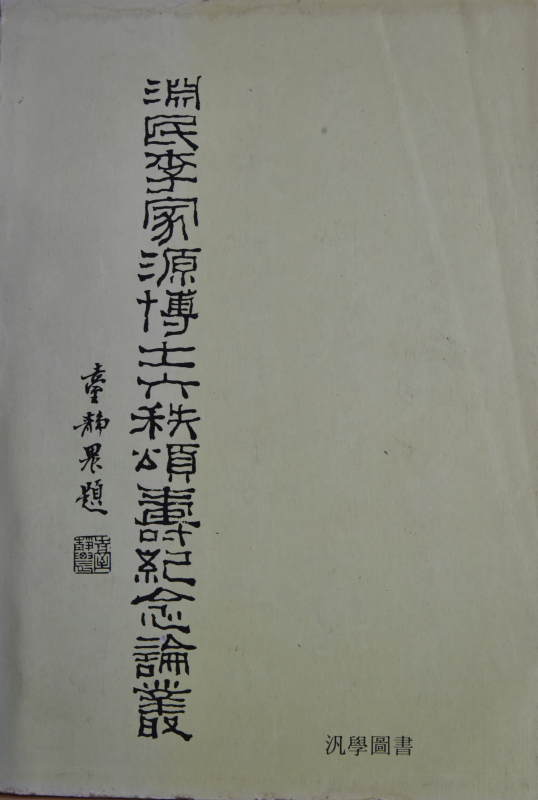 淵民李家源博士六秩頌壽紀念論叢
臺靜農題
臺靜農
汎學圖書